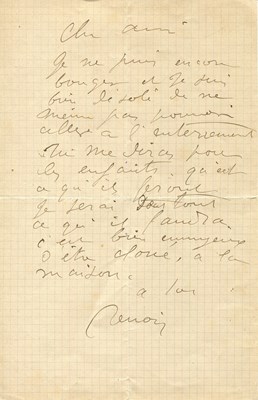 Cher ami
Je ne puis encore
bouger et Je suis
bien désolé de ne
même pas pouvoir
aller à l'enterrement
me diras pour
les enfants qu'est
ce qu'ils feront
Je ferai tout
ce qu'il faudra.
c'est bien ennuyeux
d'être cloué, à la
maison.
a toi
Renoir